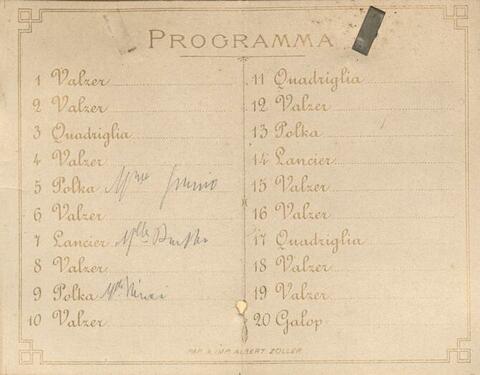 PROGRAMMA
1 Valzer
2 Valzer
3 Quadriglia
4 Valzer
5 Polka Mme
6 Valzer
7 Lancier Mlle
8 Valzer
9 Polka
10 Valzer
11 Quadriglia
12 Valzer
13 Polka
14 Lancier
15 Valzer
16 Valzer
17 Quadriglia
18 Valzer
19 Valzer
20 Galop
PAP. & IMP. ALBERT ZOLLER